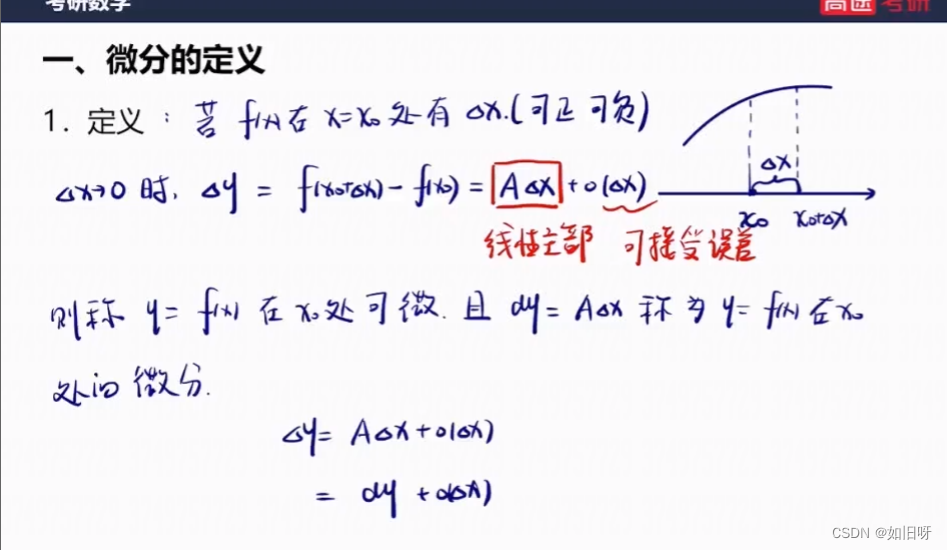 考研数学
高途 考研
一、微分的定义
1. 定义：若 f(x) 在 x=x₀ 处有 Δx.(可正可负)
Δx→0 时, Δy = f(x₀+Δx) - f(x₀) = AΔx + o(Δx)
Δx
x₀ x₀+Δx
线性主部 可接受误差
则称 y = f(x) 在 x₀ 处可微. 且 dy = AΔx 称为 y = f(x) 在 x₀
处的微分.
Δy = AΔx + o(Δx)
= dy + o(Δx)
CSDN @如旧呀